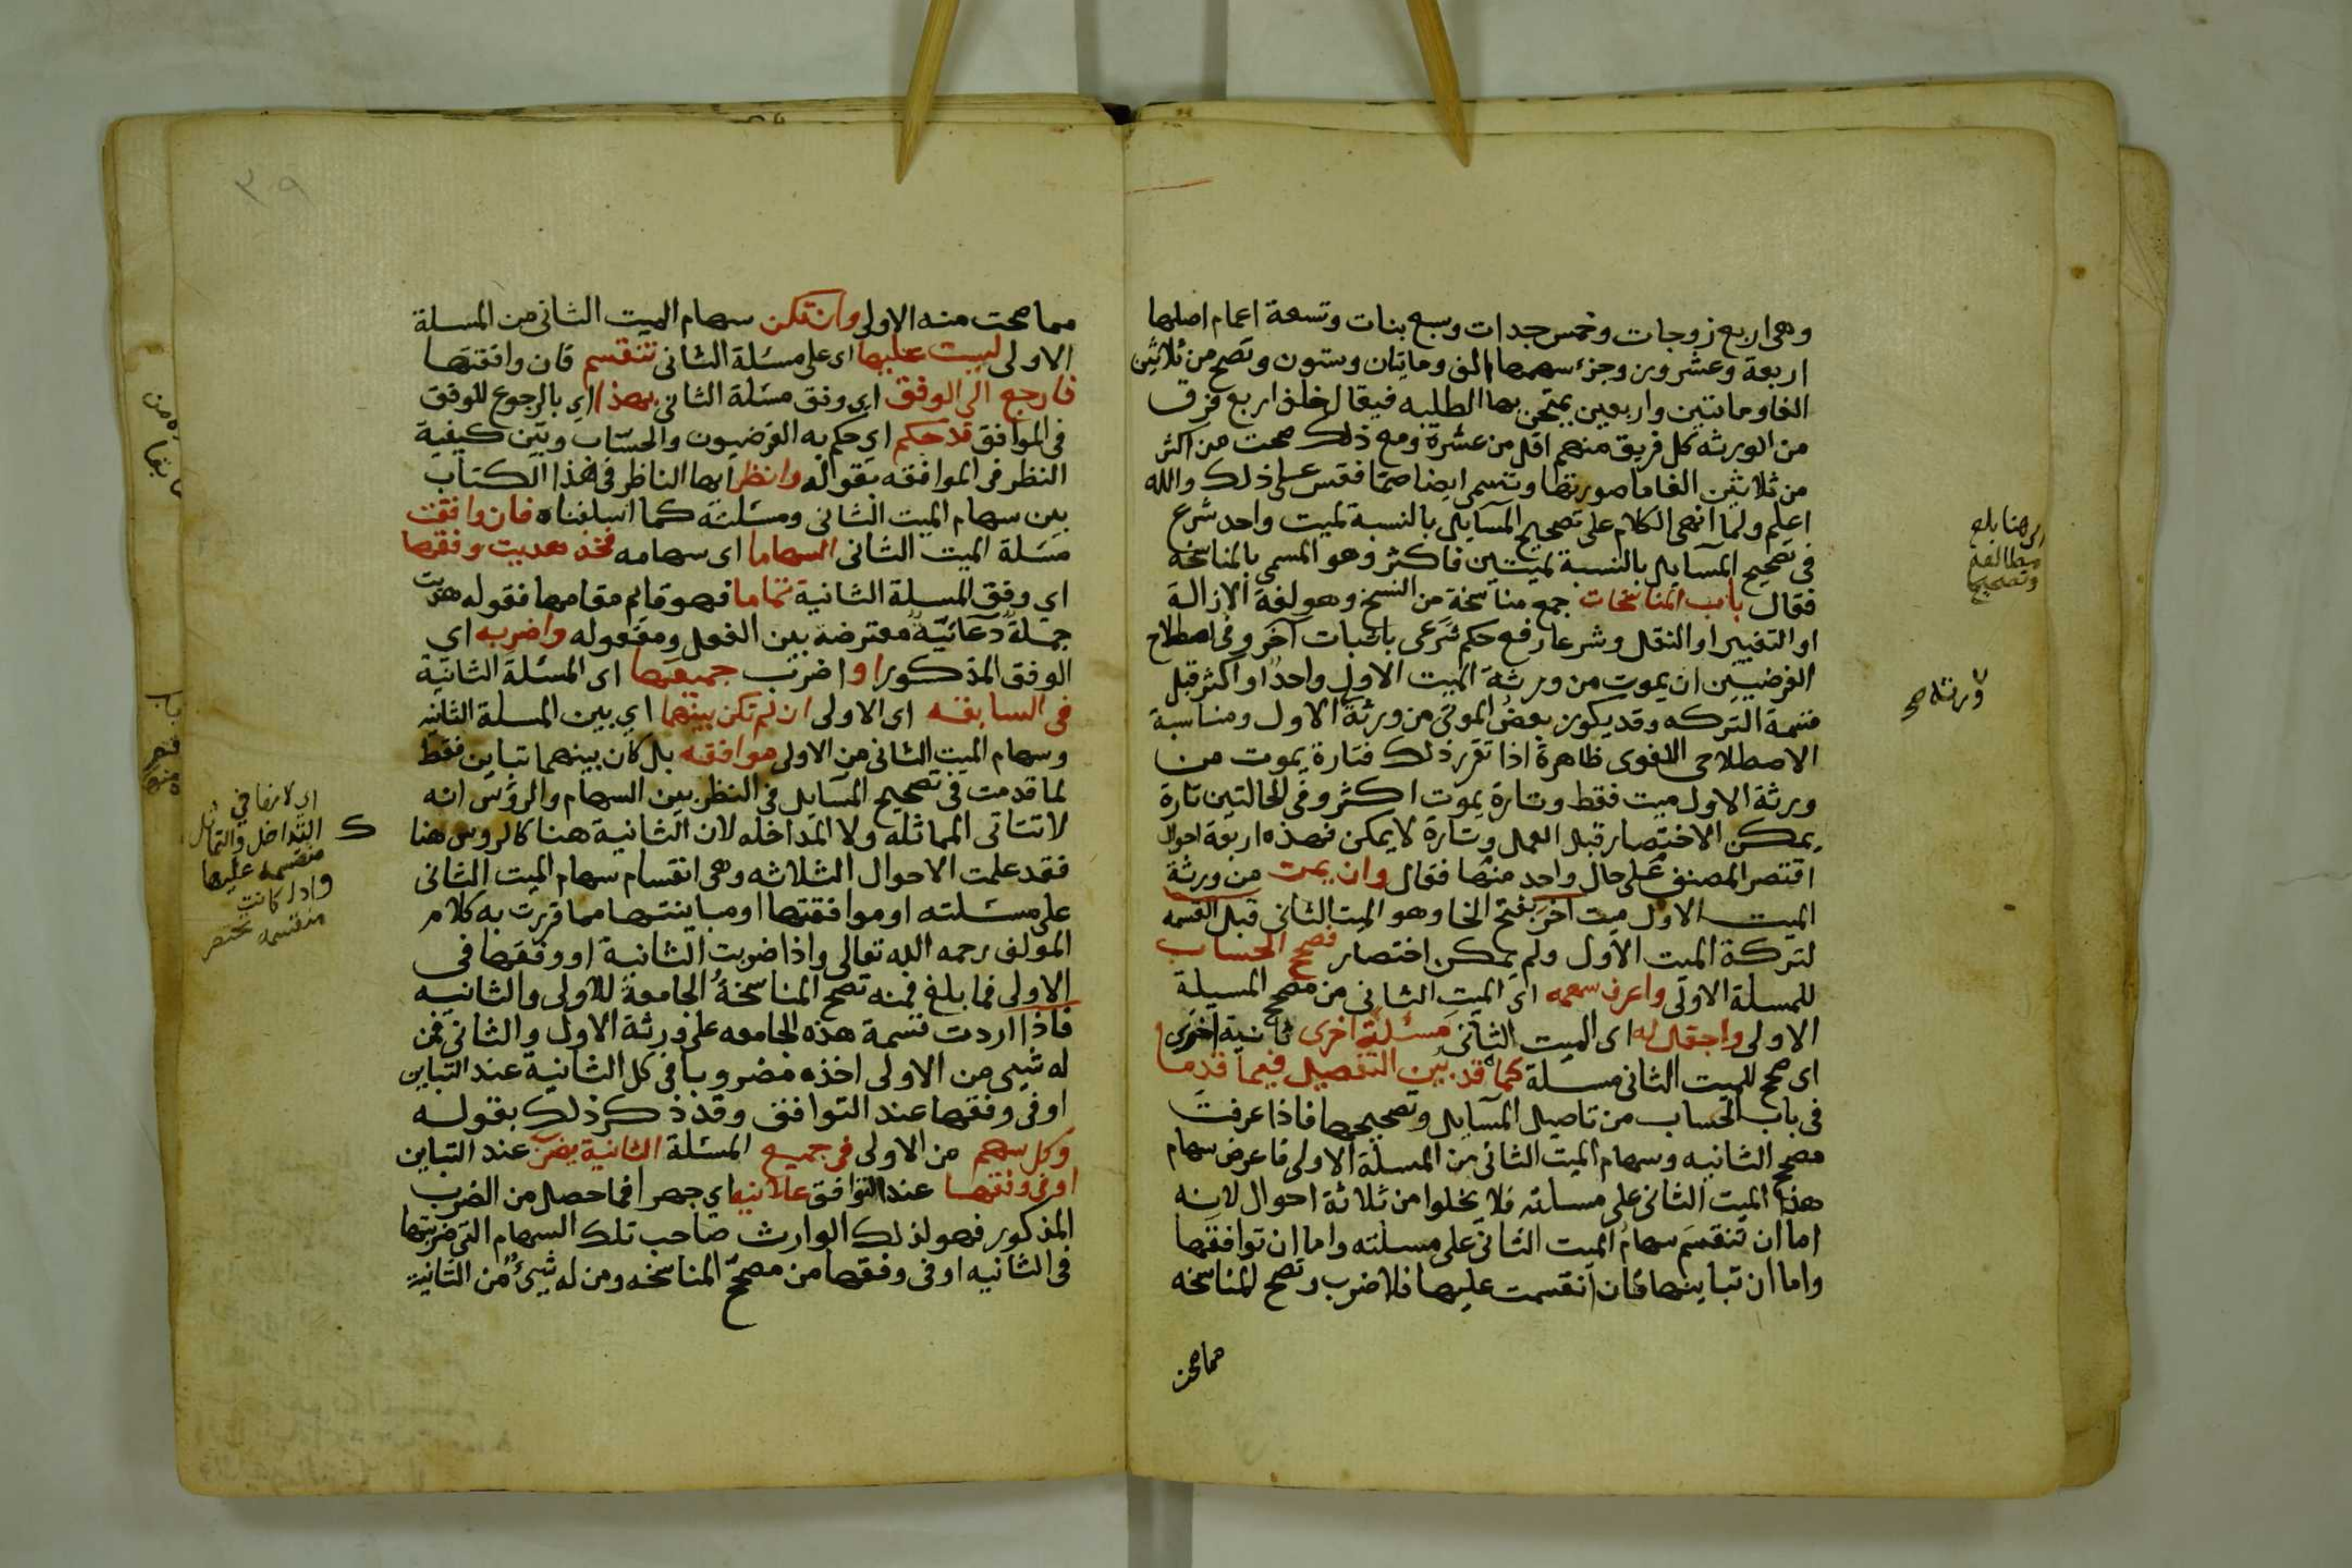 وهى اربع زوجات وخمس جدات وسبع بنات وتسعة اعمام اصلها
اربعة وعشرون وجزء سهمها الف ومايتان وستون وتصح من ثلاثين
الفا ومايتين واربعين يمتحن بها الطلبه فيقال خلف اربع فرق
من الورثه كل فريق منهم اقل من عشرة ومع ذلك صحت من اكثر
من ثلاثين الفا ما صورتها وتسمى ايضا صما فقس على ذلك والله
اعلم ولما انهى الكلام على تصحيح المسايل بالنسبة لميت واحد شرع
فى تصحيح المسايل بالنسبة لميتين فاكثر وهو المسمى بالمناسخة
فقال باب المناسخات جمع مناسخة من النسخ وهو لغة الازالة
او التغيير او النقل وشرعا رفع حكم شرعى باثبات آخر وفى اصطلاح
الفرضيين ان يموت من ورثة الميت الاول واحد او اكثر قبل
قسمة التركه وقد يكون بعض الموتى من ورثة الاول ومناسبة
الاصطلاحى اللغوى ظاهرة اذا تقرر ذلك فتارة يموت من
ورثة الاول ميت فقط وتارة يموت اكثر وفى الحالتين تارة
يمكن الاختصار قبل العمل وتارة لا يمكن فهذه اربعة احوال
اقتصر المصنف على حال واحد منها فقال وان يمت من ورثة
الميت الاول ميت آخر بفتح الخا وهو الميت الثانى قبل القسمه
لتركة الميت الاول ولم يمكن اختصار فصحح الحساب
للمسلة الاولى واعرف سهمه اى الميت الثانى من مصحح المسيلة
الاولى واجعل له اى الميت الثانى مسئلة اخرى ثانية اخرى
اى صحح للميت الثانى مسئلة كما قد بين التفصيل فيما قدما
فى باب الحساب من تاصيل المسايل وتصحيحها فاذا عرفت
مصحح الثانيه وسهام الميت الثانى من المسلة الاولى فاعرض سهام
هذا الميت الثانى على مسلته فلا يخلوا من ثلاثة احوال لانه
اما ان تنقسم سهام الميت الثانى على مسلته واما ان توافقها
واما ان تباينها فان انقسمت عليها فلا ضرب وتصح المناسخه
مما صحت
الى هنا بلغ
مطالعة
وتصحيحا
ورثة صح
٣٩
مما صحت منه الاولى وان تكن سهام الميت الثانى من المسلة
الاولى ليست عليها اى على مسئلة الثانى تنقسم فان وافقتها
فارجع الى الوفق اى وفق مسئلة الثانى بهذا اى بالرجوع للوفق
فى الموافق قد حكم اى حكم به الفرضيون والحساب وبين كيفية
النظر فى الموافقه بقوله وانظر ايها الناظر فى هذا الكتاب
بين سهام الميت الثانى ومسئلته كما اسلفناه فان وافقت
مسئلة الميت الثانى السهاما اى سهامه فخذ هديت وفقها
اى وفق المسلة الثانية تماما فهو قايم مقامها فقوله هديت
جملة دعائية معترضة بين الفعل ومفعوله واضربه اى
الوفق المذكور او اضرب جميعها اى المسئلة الثانية
فى السابقه اى الاولى ان لم تكن بينهما اى بين المسلة الثانيه
وسهام الميت الثانى من الاولى موافقه بل كان بينهما تباين فقط
لما قدمت فى تصحيح المسايل فى النظر بين السهام والرؤس انه
لا تتاتى المماثله ولا المداخله لان الثانية هنا كالروس هنا
فقد علمت الاحوال الثلاثه وهى انقسام سهام الميت الثانى
على مسئلته او موافقتها او مباينتها مما قررت به كلام
المولف رحمه الله تعالى واذا ضربت الثانية او وفقها فى
الاولى فما بلغ فمنه تصح المناسخة الجامعة للاولى والثانيه
فاذا اردت قسمة هذه الجامعه على ورثة الاول والثانى فمن
له شيى من الاولى اخذه مضروبا فى كل الثانية عند التباين
او فى وفقها عند التوافق وقد ذكر ذلك بقوله
وكل سهم من الاولى فى جميع المسئلة الثانية يضرب عند التباين
او فى وفقها عند التوافق علانيه اي جهرا فما حصل من الضرب
المذكور فهو لذلك الوارث صاحب تلك السهام التى ضربتها
فى الثانيه او فى وفقها من مصحح المناسخه ومن له شيئ من الثانية
التداخل والتماثل
منقسمه عليها
واذا كانت
منقسمه تختصر